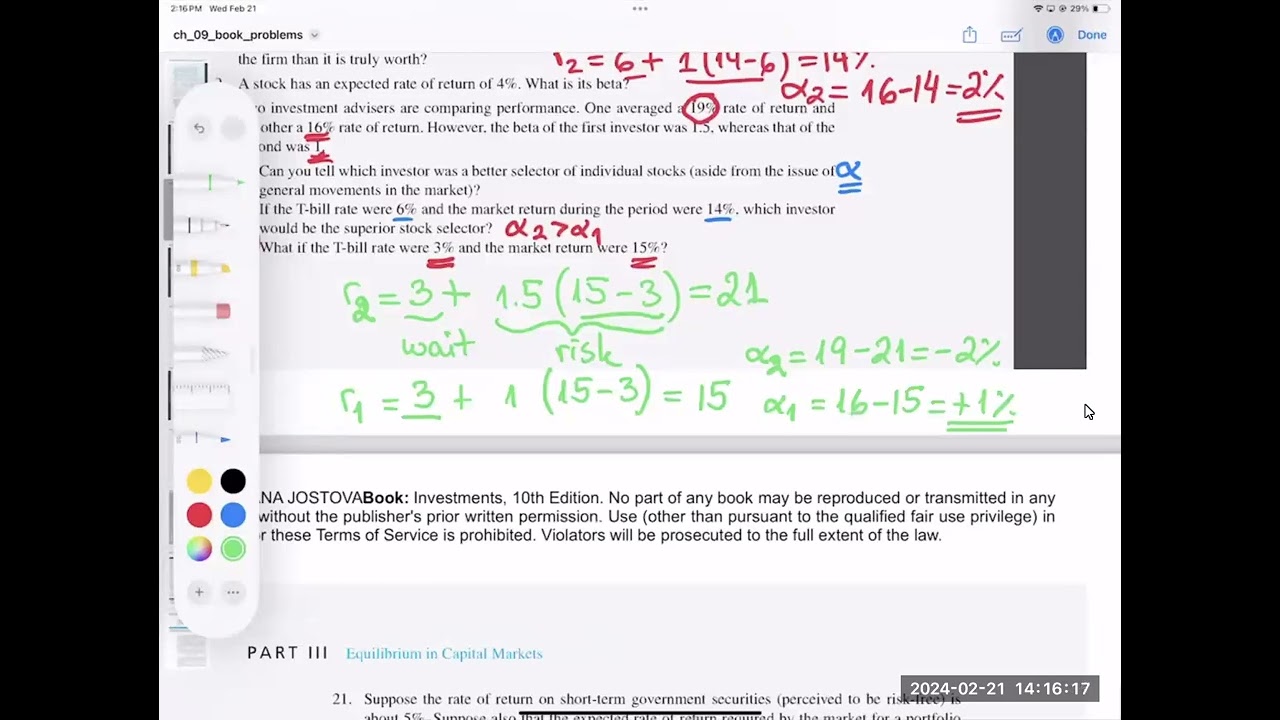 2:16 PM Wed Feb 21
29%
ch_09_book_problems
Done
the firm than it is truly worth?
r2 = 6 + 1(14-6) = 14%.
A stock has an expected rate of return of 4%. What is its beta?
α2 = 16-14 = 2%
o investment advisers are comparing performance. One averaged a 19% rate of return and
other a 16% rate of return. However, the beta of the first investor was 1.5, whereas that of the
ond was 1.
Can you tell which investor was a better selector of individual stocks (aside from the issue of α
general movements in the market)?
If the T-bill rate were 6% and the market return during the period were 14%, which investor
would be the superior stock selector? α2 > α1
What if the T-bill rate were 3% and the market return were 15%?
r2 = 3 + 1.5 (15-3) = 21
wait risk
α2 = 19-21 = -2%
r1 = 3 + 1 (15-3) = 15
α1 = 16-15 = +1%
ANA JOSTOVABook: Investments, 10th Edition. No part of any book may be reproduced or transmitted in any
without the publisher's prior written permission. Use (other than pursuant to the qualified fair use privilege) in
r these Terms of Service is prohibited. Violators will be prosecuted to the full extent of the law.
PART III Equilibrium in Capital Markets
21. Suppose the rate of return on short-term government securities (perceived to be risk-free) is
about 5%. Suppose also that the expected rate of return required by the market for a portfolio
2024-02-21 14:16:17